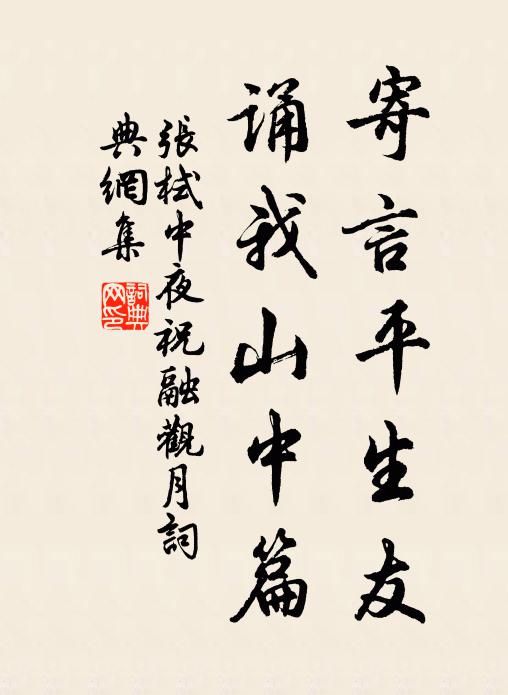 寄言平生友
誦我山中篇
張栻中夜祝融觀月詞
典網集
詞典網印